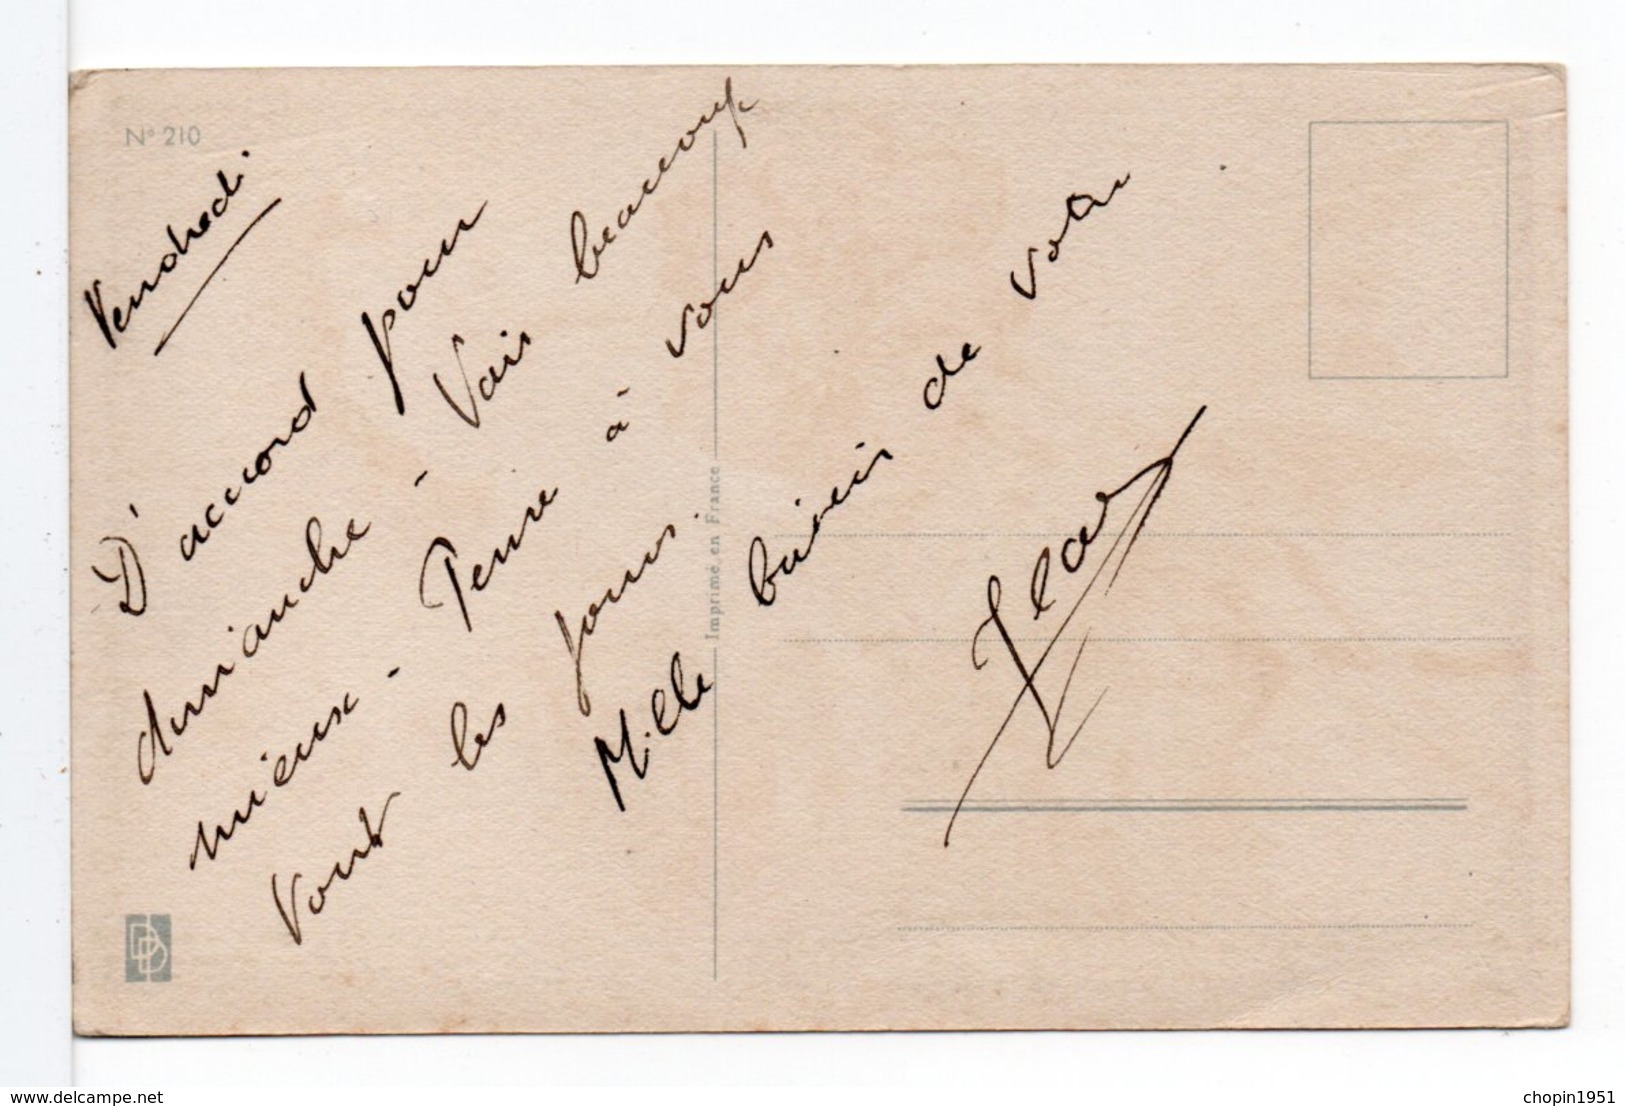 N° 210
Vendredi
D'accord pour
dimanche - Vais beaucoup
mieux - Pense à vous
tout les jours.
Mille baisers de votre
Jean
Imprimé en France
delcampe.net
chopin1951